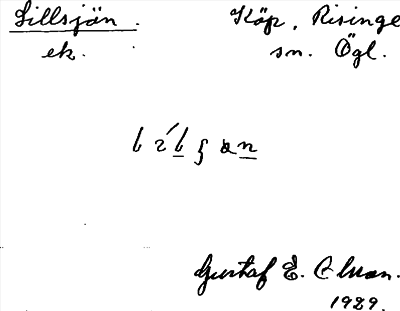 Lillsjön. Köp, Risinge
ek. sn. Ögl.
Gustaf E. Elman.
1929.